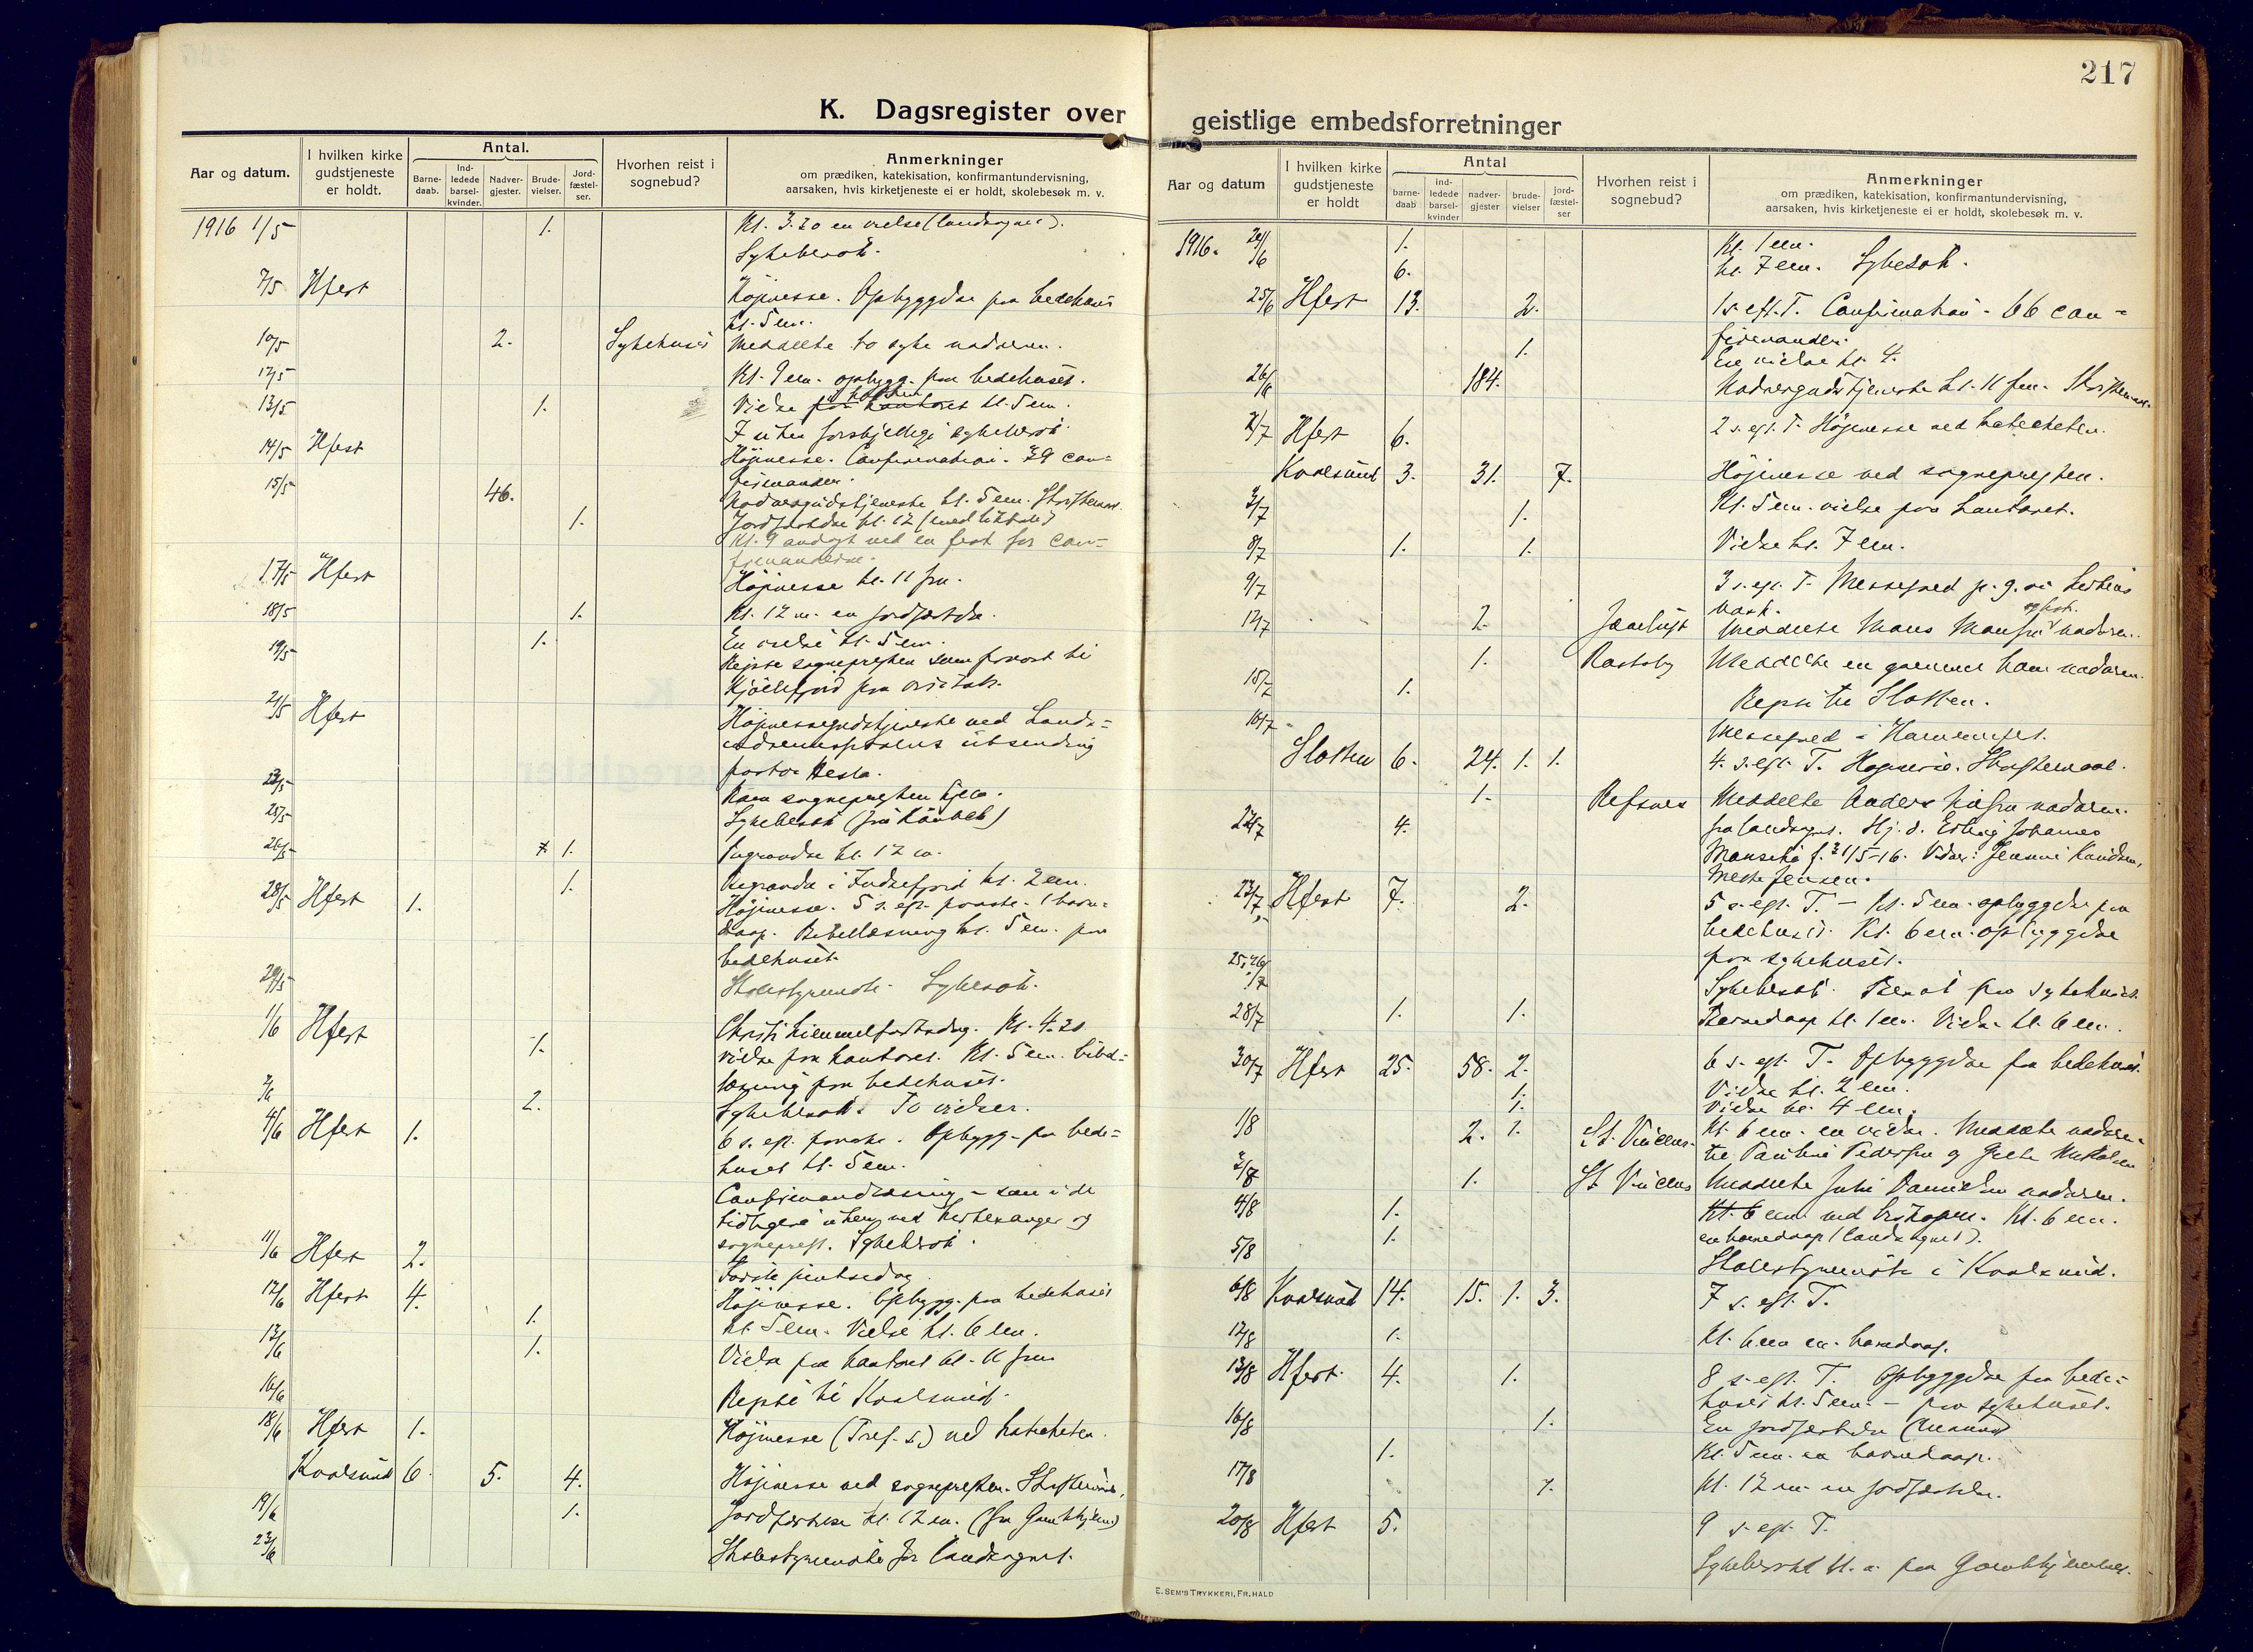 217
K. Dagsregister over
geistlige embedsforretninger
Aar og datum.
I hvilken kirke gudstjeneste er holdt.
Antal.
Barne-daab.
Ind-ledede barsel-kvinder.
Nadver-gjester.
Brude-vielser.
Jord-fæstel-ser.
Hvorhen reist i sognebud?
Anmerkninger
om prædiken, katekisation, konfirmantundervisning,
aarsaken, hvis kirketjeneste ei er holdt, skolebesøk m. v.
1916 1/5 1. Kl. 3.20 en vielse (landsognet).
Sykebesök.
7/5 Hfest Höjmesse. Opbyggelse paa bedehuset
kl. 5 em.
10/5 2. Sykehuset Meddelte to syke nadveren.
12/5 Kl. 9 em. opbygg. paa bedehuset.
13/5 1. Vielse paa kontoret kl. 5 em.
I uken forskjellige sykebesök.
14/5 Hfest Höjmesse. Confirmation. 39 con=
firmander.
15/5 46. Nadvergudstjeneste kl. 5 em. Skriftemaal.
1. Jordfæstelse kl. 12 (med liktale)
Kl. 9 andagt ved en fest for con=
firmanderne.
17/5 Hfest Höjmesse kl. 11 fm.
18/5 1. Kl. 12 m. en jordfæstelse.
19/5 1. En vielse kl. 5 em.
Rejste sognepresten som provst til
Kjöllefjord paa visitats.
21/5 Hfest Höjmessegudstjeneste ved Lands=
utsending
pastor
23/5 Kom sognepresten hjem.
25/5 Sykebesök
26/5 1. kl. 12 m.
28/5 1. i kl. 2 em.
Hfest 1. Höjmesse. 5 s. eft. paaske. 1 barne=
daap. Bibellæsning kl. 5 em. paa
bedehuset.
29/5 Skolestyremöte. Sykebesök.
1/6 Hfest Christi himmelfartsdag. Kl. 4.20
1. vielse paa kontoret. Kl. 5 em. bibel=
læsning paa bedehuset.
2. Sykebesök. To vielser.
4/6 Hfest 1. 6 s. eft. paaske. Opbygg. paa bede=
huset kl. 5 em.
Confirmandlæsning som i de
tidligere uker ved og
sogneprest. Sykebesök.
11/6 Hfest 2. Förste pintsedag
12/6 Hfest 4. Höjmesse. Opbygg. paa bedehuset
1. kl. 5 em. Vielse kl. 6 em.
13/6 1. Vielse paa kontoret kl. 11 fm.
16/6 Rejste til Kvalsund.
18/6 Hfest 1. Höjmesse (Tref. s.) ved kateketen.
Kvalsund 6. 5. 4. Höjmesse ved sognepresten. Skriftemaal.
19/6 1. Jordfæstelse kl. 12 m.
23/6 Skolestyremöte for landsognet.
Aar og datum
I hvilken kirke gudstjeneste er holdt
Antal
barne-daab
ind-ledede barsel-kvinder
nadver-gjester
brude-vielser
jord-fæstel-ser
Hvorhen reist i sognebud?
Anmerkninger
om prædiken, katekisation, konfirmantundervisning,
aarsaken, hvis kirketjeneste ei er holdt, skolebesøk m. v.
1916. 24/6 1. Kl. 1 em.
6. kl. 7 em. Sykebesök.
25/6 Hfest 13. 2. 1 s. eft. T. Confirmation. 66 con=
firmander.
1. En vielse kl. 4.
26/6 184. Nadvergudstjeneste kl. 11 fm. Skriftemaal.
2/7 Hfest 6. 2 s. eft. T. Höjmesse ved kateketen.
Kvalsund 3. 31. 7. Höjmesse ved sognepresten.
3/7 1. Kl. 5 em. vielse paa kontoret.
8/7 1. 1. Vielse kl. 7 em.
9/7 3 s. eft. T. Messefald p. g. a. kirkens
vask.
12/7 2. Meddelte nadveren.
1. Meddelte en gammel kone nadveren.
15/7 1. Rejste til Slotten.
16/7 Messefald i Hammerfest.
Slotten 6. 24. 1. 1. 4. s. eft. T. Skriftemaal.
1. Refsnes Meddelte Anders nadveren.
22/7 4. fra landsognet. Hj. d. Erling Johannes
f. 21/5-16. Vidner: Knudsen,
Jensen.
23/7 Hfest 7. 2. 5 s. eft. T. – Kl. 5 em. opbyggelse paa
bedehuset. Kl. 6 em. opbyggelse
paa sykehuset.
25, 26/7 Sykebesök. Besök paa sykehuset.
28/7 1. 1. Barnedaap kl. 1 em. Vielse kl. 6 em.
30/7 Hfest 25. 58. 2. 6 s. eft. T. Opbyggelse paa bedehuset.
1. Vielse kl. 2 em.
1. Vielse kl. 4 em.
1/8 2. 1. St. Vincens. Kl. 6 em. en vielse. Meddelte nadveren
til Pauline Pedersen og
1. St. Vincens Meddelte nadveren.
4/8 1. Kl. 6 em. ved biskopen. Kl. 6 em.
1. en barnedaap (landsognet).
5/8 Skolestyremöte i Kvalsund.
6/8 Kvalsund 14. 15. 1. 3. 7 s. eft. T.
12/8 1. Kl. 6 em. en barnedaap.
13/8 Hfest. 4. 1. 8 s. eft. T. Opbyggelse paa bede=
huset kl. 5 em. – paa sykehuset.
16/8 1. En jordfæstelse
1. Kl. 5 em. en barnedaap.
17/8 1. Kl. 12 m. en jordfæstelse.
20/8 Hfest 5. 9 s. eft. T.
Sykebesök bl. a. paa Gamlehjemmet.
E. SEM'S TRYKKERI, FR. HALD